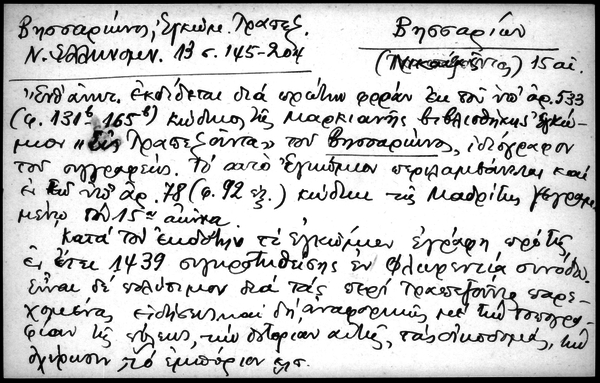 Βησσαρίωνος, Ἐγκώμ. Τραπεζ.
Ν. Ἑλληνομν. 13 σ. 145-204
Βησσαρίων
15 αἰ.
ἐκδίδεται διὰ πρώτην φορὰν ἐκ τοῦ ὑπ' ἀρ. 533
(φ. 131β-165β) κώδικος τῆς Μαρκιανῆς βιβλιοθήκης Ἐγκώ-
μιον «εἰς Τραπεζοῦντα» τοῦ Βησσαρίωνος, ἰδιόγραφον
τοῦ συγγραφέως. Τὸ αὐτὸ Ἐγκώμιον περιλαμβάνεται καὶ
ἐν τῷ ὑπ' ἀρ. 78 (φ. 92 ἑξ.) κώδικι τῆς Μαδρίτης γεγραμ-
μένῳ τὸν 15ον αἰῶνα.
Κατὰ τὸν ἐκδότην τὸ ἐγκώμιον ἐγράφη πρὸ τῆς
ἐν ἔτει 1439 συγκροτηθείσης ἐν Φλωρεντίᾳ συνόδου.
Εἶναι δὲ πολύτιμον διὰ τὰς περὶ Τραπεζοῦντος παρε-
χομένας εἰδήσεις καὶ δὴ ἀναφορικῶς μὲ τὴν τοπογρα-
φίαν τῆς πόλεως, τὴν ἱστορίαν αὐτῆς, τὰς οἰκοδομάς, τὴν
ὀχύρωσιν, τὸ ἐμπόριον κλπ.